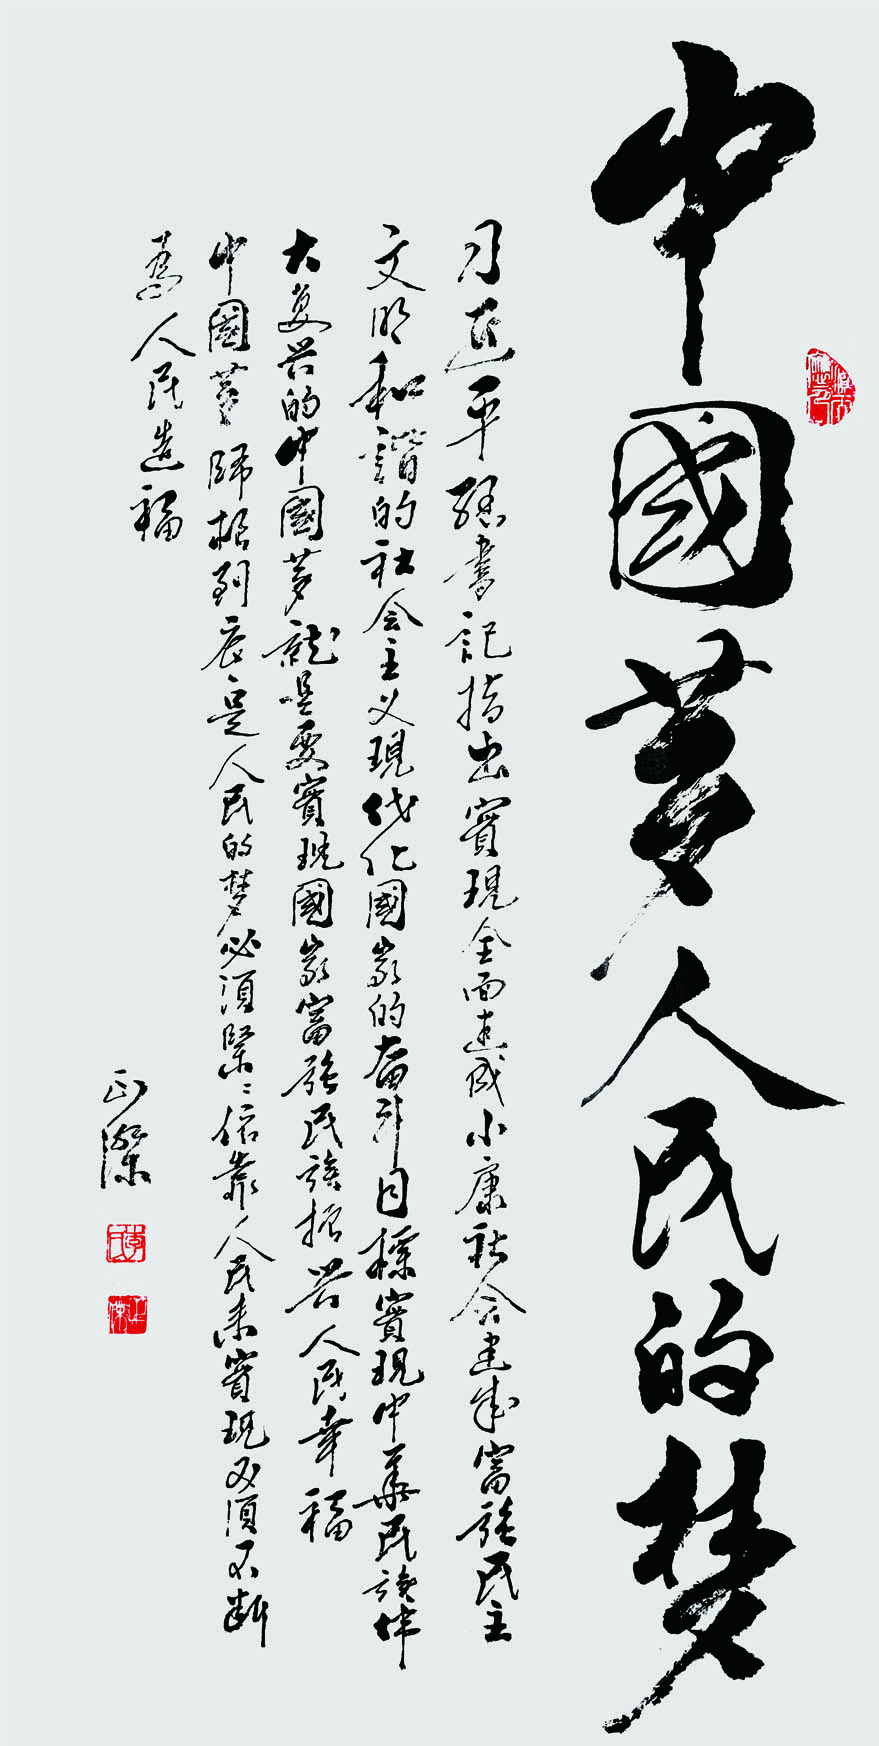 中國夢人民的梦
习近平總書記指出實現全面建成小康社会建成富强民主
文明和諧的社会主义現代化國家的奋斗目標實現中華民族伟
大复兴的中國夢就是要實現國家富强民族振兴人民幸福
中國夢歸根到底是人民的梦必須緊〻依靠人民来實現必須不断
為人民造福
正